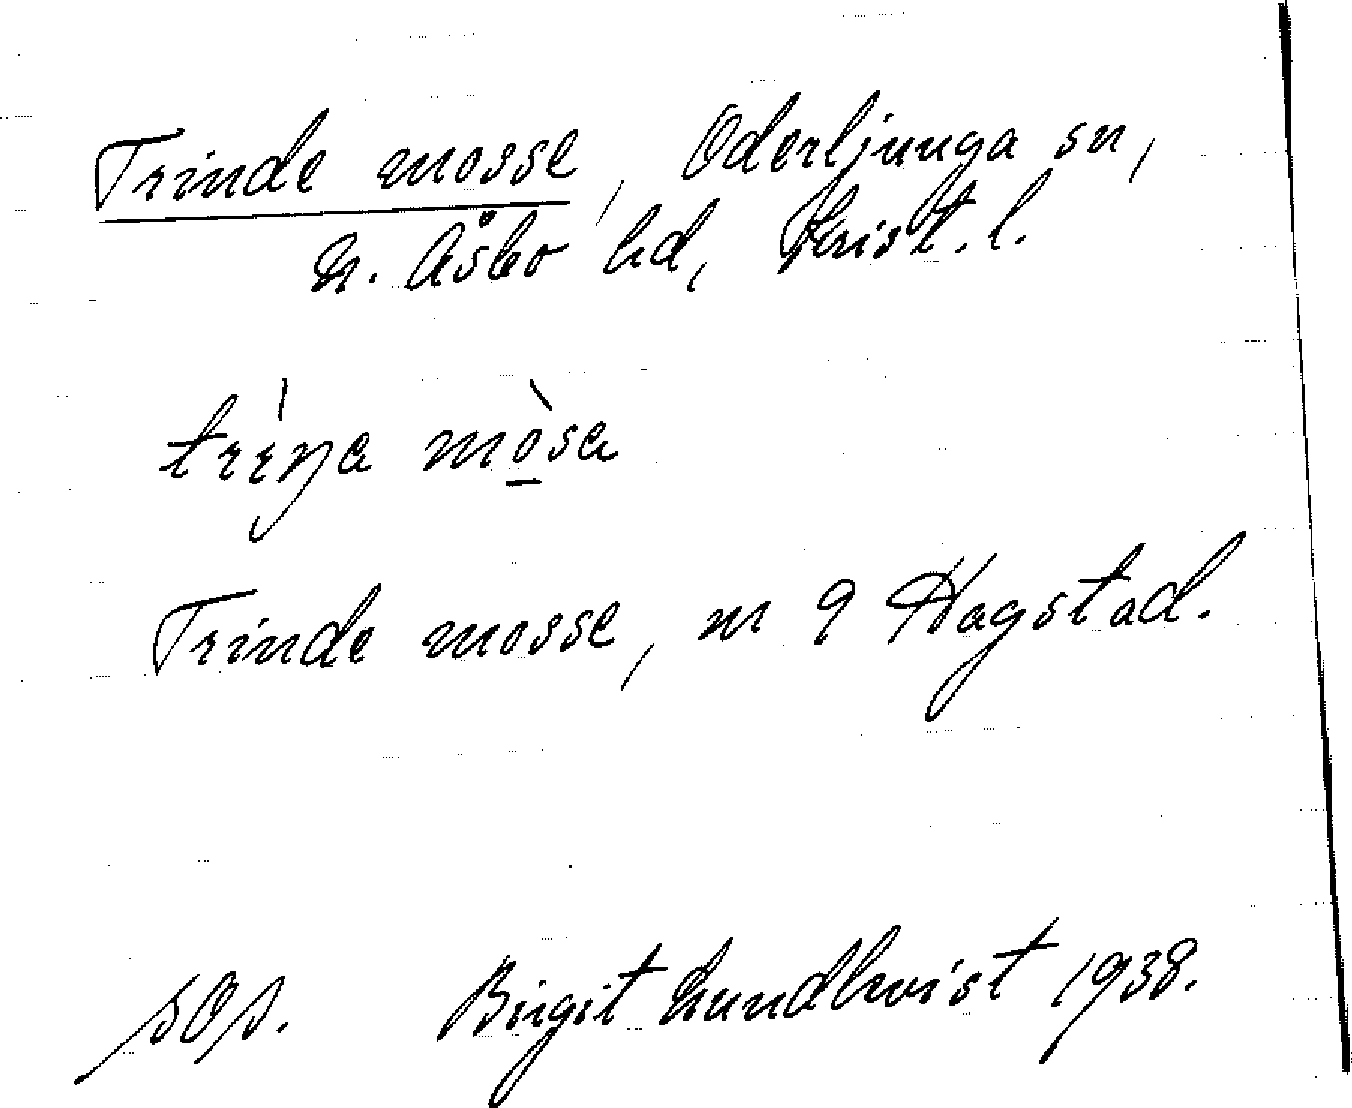 Trinde mosse, Oderljunga sn,
N. Åsbo hd, Krist. l.
trìŋa mòsa
Trinde mosse, m 9 Hagstad.
sOs. Birgit Lundkvist 1938.